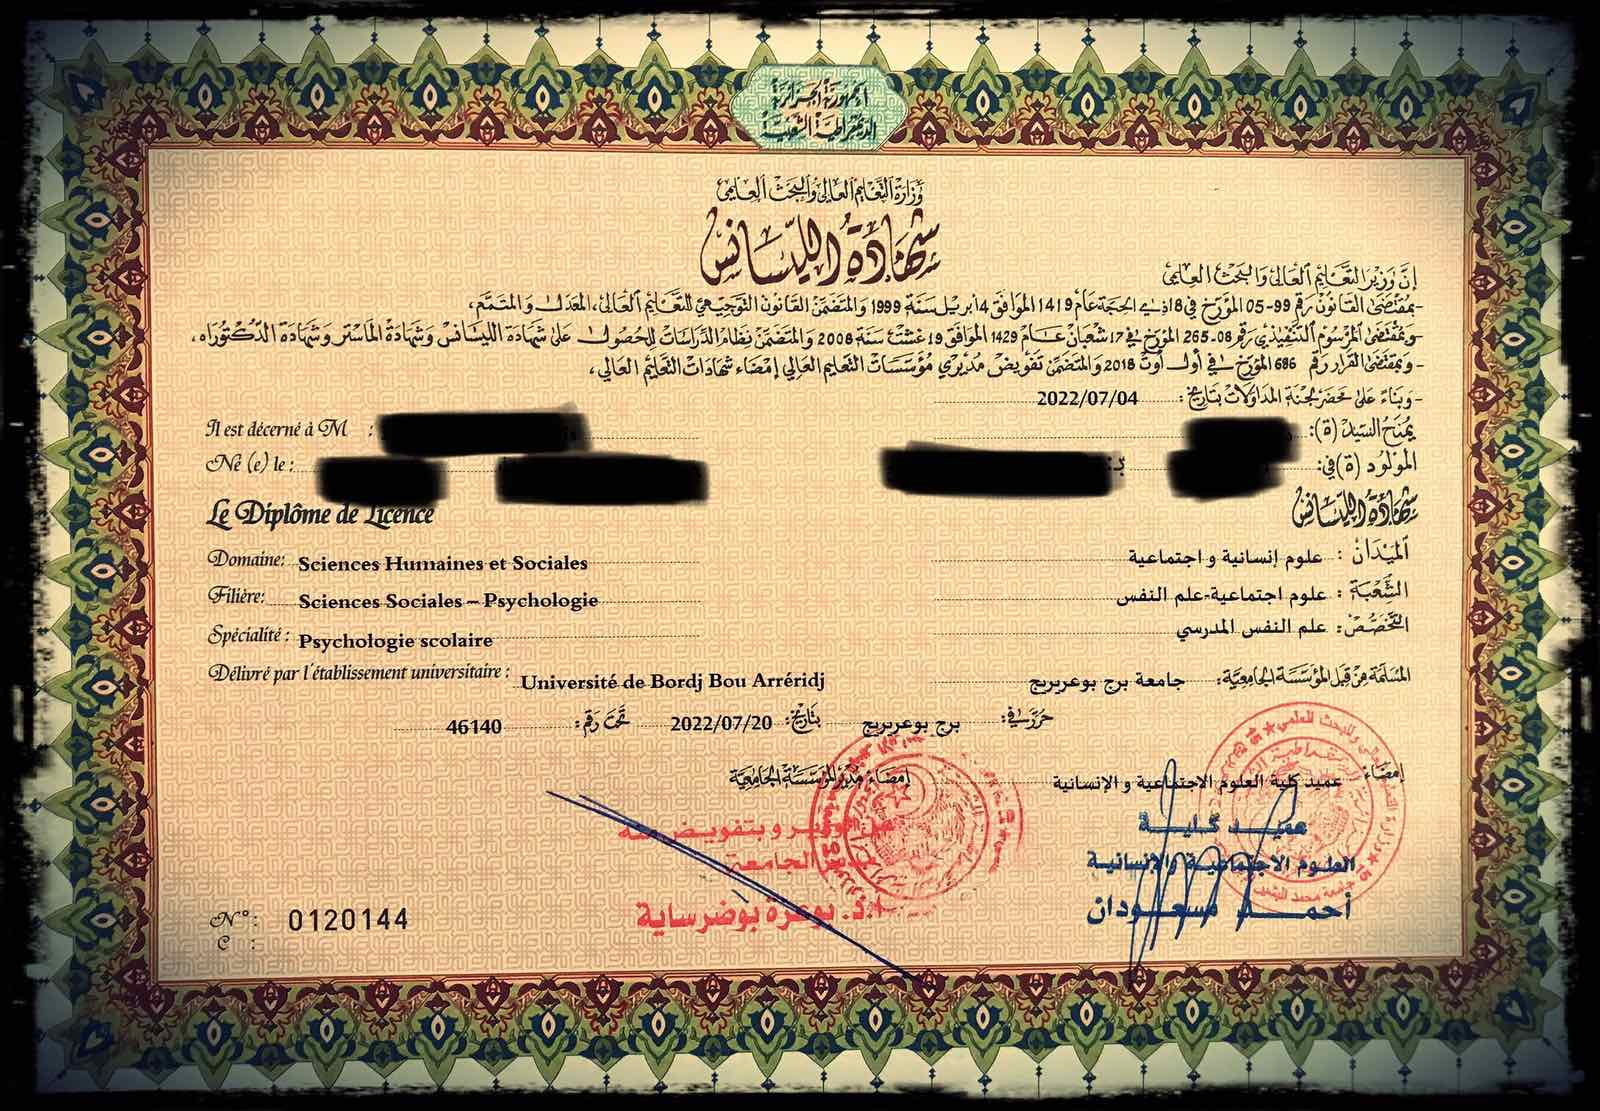 الجمهورية الجزائرية
الديمقراطية الشعبية
وزارة التعليم العالي والبحث العلمي
شهادة الليسانس
إن وزير التعليم العالي والبحث العلمي
-بمقتضى القانون رقم 99-05 المؤرخ في 18 ذي الحجة عام 1419 الموافق 4 أبريل سنة 1999 والمتضمن القانون التوجيهي للتعليم العالي، المعدل والمتمم،
-وبمقتضى المرسوم التنفيذي رقم 08-265 المؤرخ في 17 شعبان عام 1429 الموافق 19 غشت سنة 2008 والمتضمن نظام الدراسات للحصول على شهادة الليسانس وشهادة الماستر وشهادة الدكتوراه،
-وبمقتضى القرار رقم 686 المؤرخ في أول أوت 2018 والمتضمن تفويض مديري مؤسسات التعليم العالي إمضاء شهادات التعليم العالي،
-وبناء على محضر لجنة المداولات بتاريخ: 2022/07/04
يمنح السيد (ة):
Il est décerné à M :
المولود (ة) في: بـ:
Né (e) le :
شهادة الليسانس
Le Diplôme de Licence
الميدان : علوم إنسانية و اجتماعية
Domaine: Sciences Humaines et Sociales
الشعبة : علوم اجتماعية-علم النفس
Filière: Sciences Sociales – Psychologie
التخصص: علم النفس المدرسي
Spécialité : Psychologie scolaire
المسلمة من قبل المؤسسة الجامعية: جامعة برج بوعريريج
Délivré par l'établissement universitaire : Université de Bordj Bou Arréridj
حرر في: برج بوعريريج بتاريخ: 2022/07/20 تحت رقم: 46140
إمضاء عميد كلية العلوم الاجتماعية و الإنسانية
إمضاء مدير المؤسسة الجامعية
عميد كلية
العلوم الاجتماعية والإنسانية
أحمد مسعودان
و بتفويض منه
الجامعة
أ.د. بوعزة بوضرساية
N° : 0120144
C :